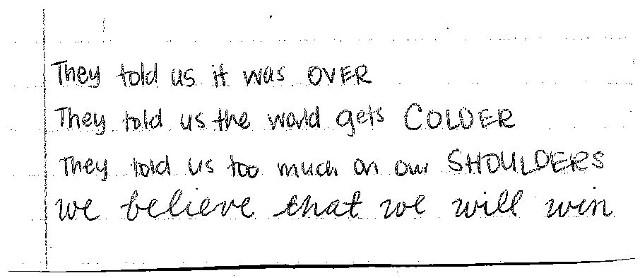 They told us it was OVER
They told us the world gets COLDER
They told us too much on our SHOULDERS
we believe that we will win